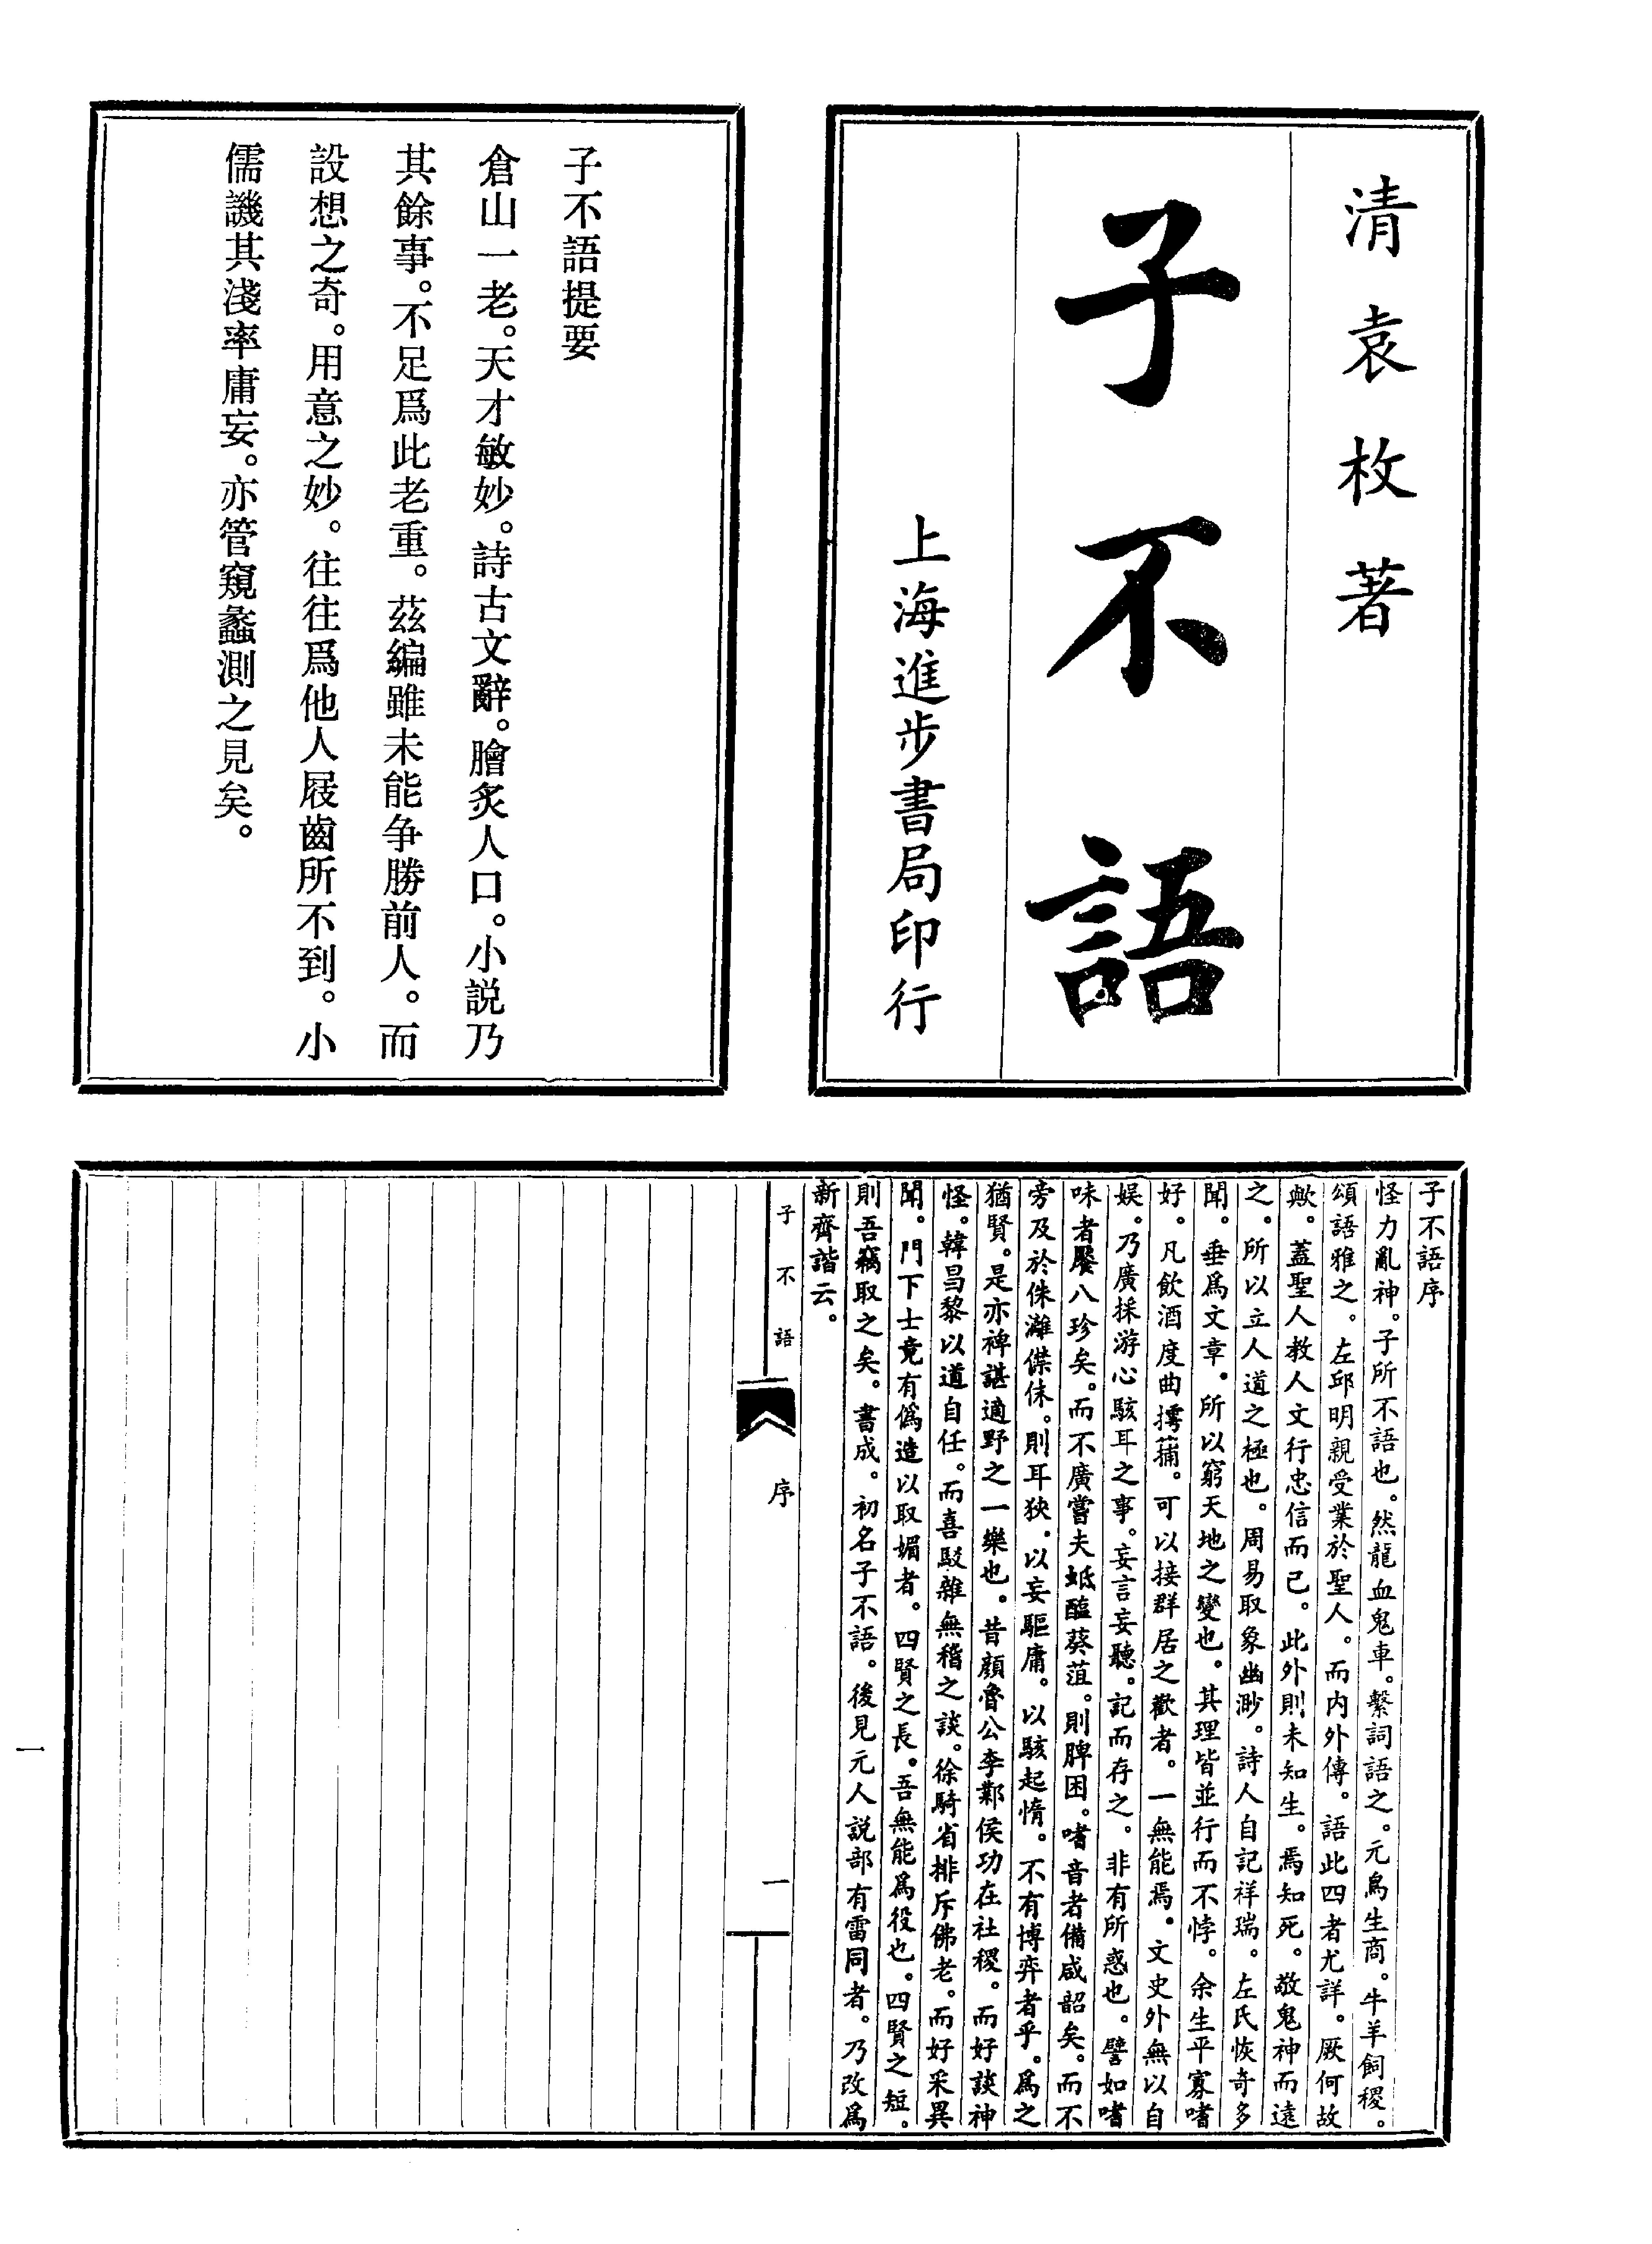 清袁枚著
子不語
上海進步書局印行
子不語提要
倉山一老。天才敏妙。詩古文辭。膾炙人口。小説乃
其餘事。不足爲此老重。茲編雖未能争勝前人。而
設想之奇。用意之妙。往往爲他人屐齒所不到。小
儒譏其淺率庸妄。亦管窺蠡測之見矣。
子不語序
怪力亂神。子所不語也。然龍血鬼車。繫詞語之。元鳥生商。牛羊飼稷。
頌語雅之。左邱明親受業於聖人。而内外傳。語此四者尤詳。厥何故
歟。蓋聖人教人文行忠信而已。此外則未知生。焉知死。敬鬼神而遠
之。所以立人道之極也。周易取象幽渺。詩人自記祥瑞。左氏恢奇多
聞。垂爲文章。所以窮天地之變也。其理皆並行而不悖。余生平寡嗜
好。凡飲酒度曲摴蒱。可以接群居之歡者。一無能焉。文史外無以自
娱。乃廣採游心駭耳之事。妄言妄聽。記而存之。非有所惑也。譬如嗜
味者饜八珍矣。而不廣嘗夫蚳醢葵菹。則脾困。嗜音者備咸韶矣。而不
旁及於侏㒧僸佅。則耳狹。以妄驅庸。以駭起惰。不有博弈者乎。爲之
猶賢。是亦裨諶適野之一樂也。昔顔魯公李鄴侯功在社稷。而好談神
怪。韓昌黎以道自任。而喜駁雜無稽之談。徐騎省排斥佛老。而好采異
聞。門下士竟有僞造以取媚者。四賢之長。吾無能爲役也。四賢之短。
則吾竊取之矣。書成。初名子不語。後見元人説部有雷同者。乃改爲
新齊諧云。
子不語
序
一
一